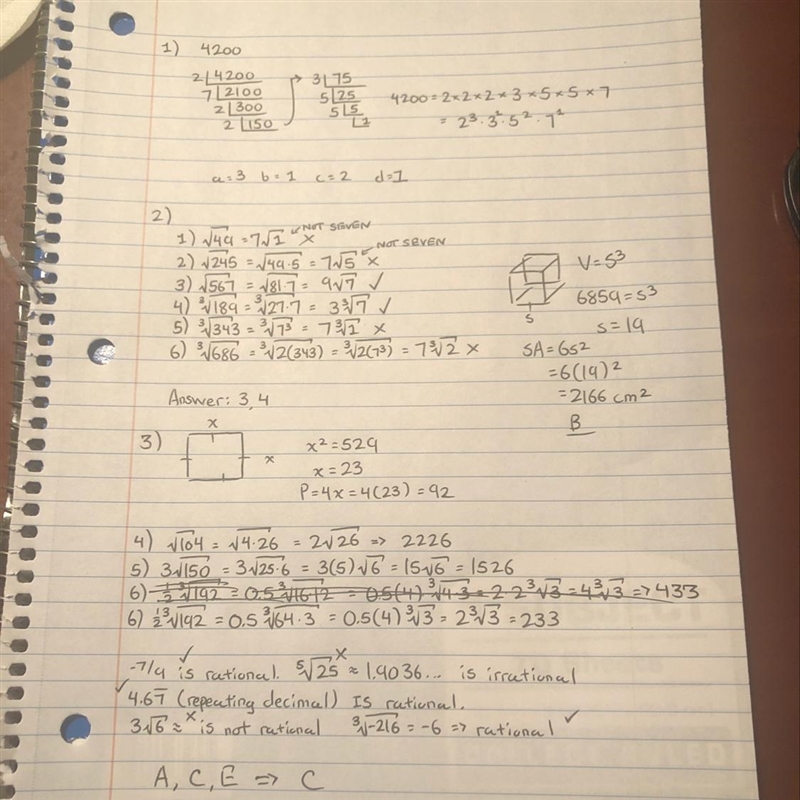 1) 4200
2 4200
7 2100
2 300
2 150
3 75
5 25
5 5
1
4200 = 2×2×2×3×5×5×7
= 2³·3²·5²·7²
a=3 b=1 c=2 d=1
2)
1) √49 = 7√1 NOT SEVEN ×
2) √245 = √49·5 = 7√5 × NOT SEVEN
3) √567 = √81·7 = 9√7 ✓
4) ³√189 = ³√27·7 = 3³√7 ✓
5) ³√343 = ³√7³ = 7³√1 ×
6) ³√686 = ³√2(343) = ³√2(7³) = 7³√2 ×
Answer: 3,4
s
V=S³
6859=s³
s=19
SA=6s²
=6(19)²
=2166 cm²
B
3)
x
x
x²=529
x=23
P=4x=4(23)=92
4) √104 = √4·26 = 2√26 => 2226
5) 3√150 = 3√25·6 = 3(5)√6 = 15√6 = 1526
6) ½ ³√192 = 0.5³√16·12 = 0.5(4)³√4·3 = 2·2³√3 = 4³√3 => 433
6) ½³√192 = 0.5³√64·3 = 0.5(4)³√3 = 2³√3 = 233
-7/9 ✓ is rational. ⁵√25 × ≈ 1.9036... is irrational
✓ 4.67̅ (repeating decimal) IS rational.
3√6 ≈ × is not rational ³√-216 = -6 => rational ✓
A, C, E => C